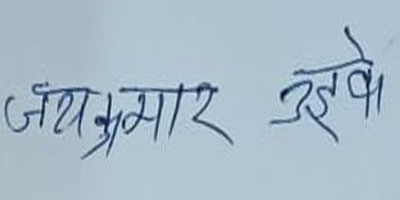 जयकुमार उइके